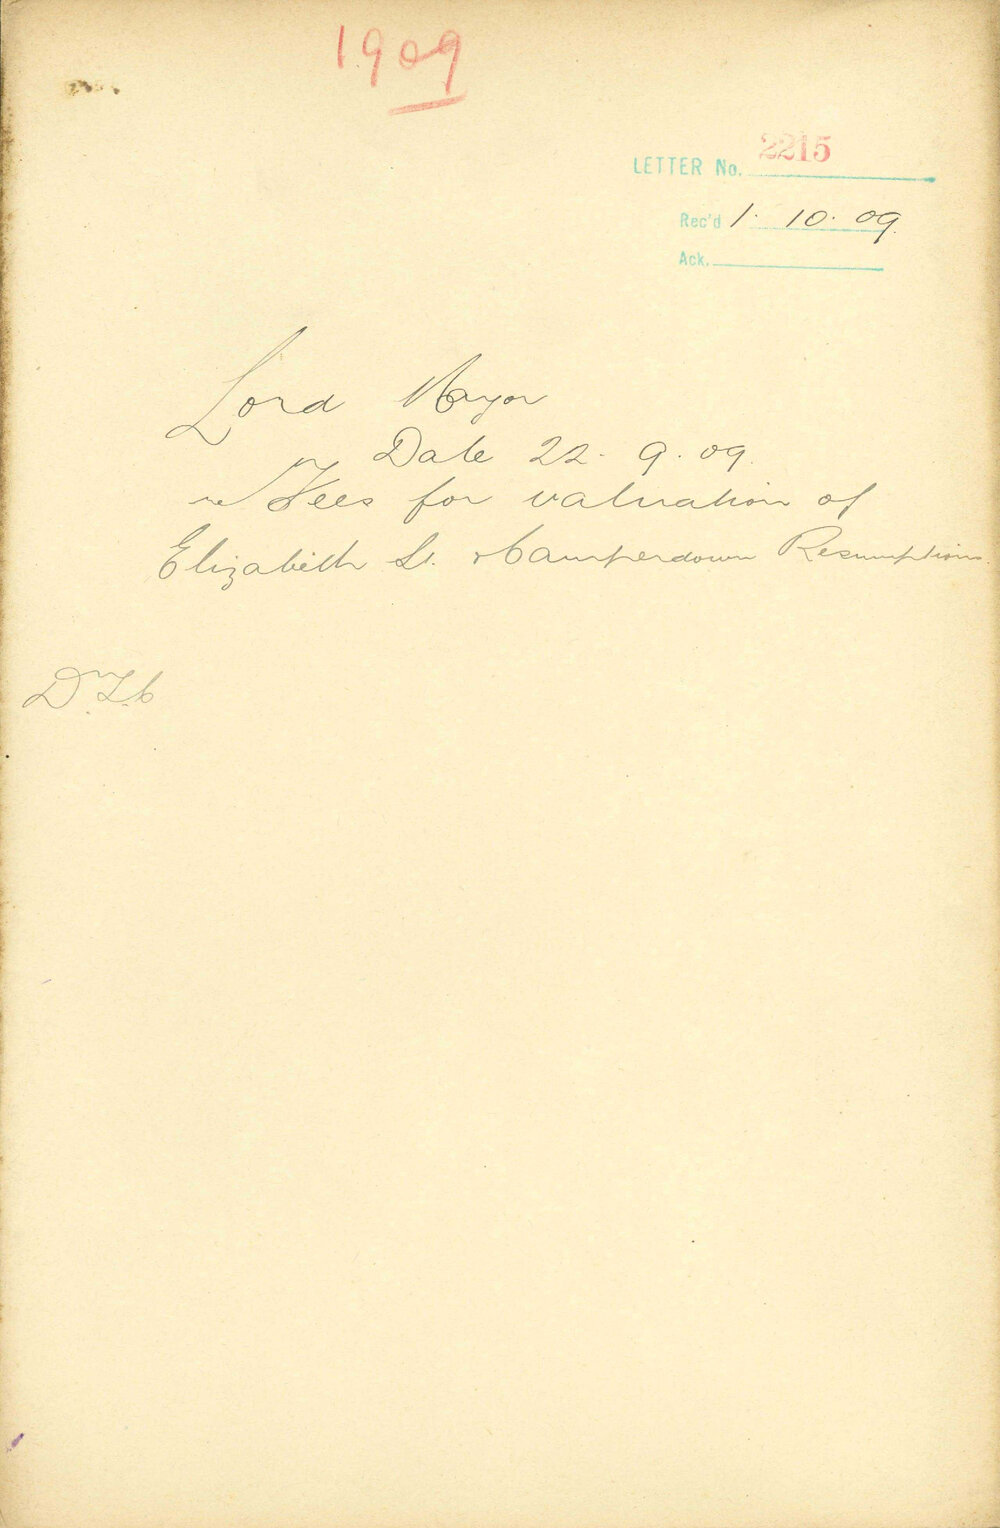 1909
LETTER No. 2215
Rec'd 1. 10. 09.
Ack.
Lord Mayor
Date 22. 9. 09.
re Fees for valuation of
Elizabeth St. & Camperdown Resumptions.